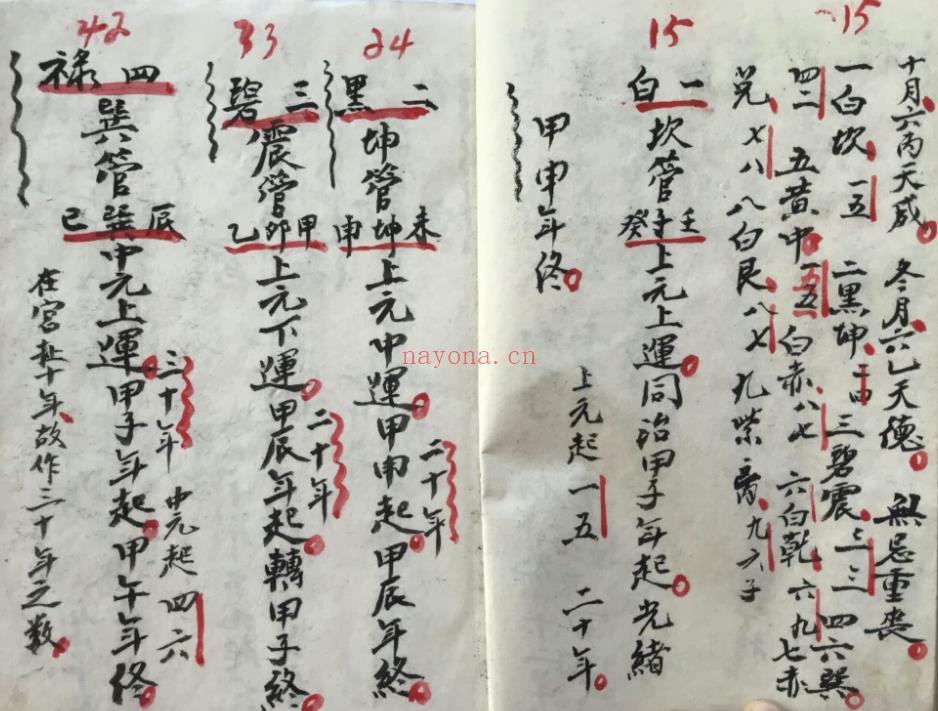 15
十月六丙天成 冬月六己天德 無忌重喪
一白坎 一五 二黑坤 二四 三碧震 三三 四六巽
四二 五黄中 一五 白赤八七 六白乾 六九 七赤
兑 七八 八白艮 八七 九紫 离 九六子
15
一白 坎管壬子癸上元上運同治甲子年起光緒
甲申年終 上元起一五 二十年
24
二黑 坤管未坤申上元中運甲申起甲辰年終 二十年
33
三碧 震管甲卯乙上元下運甲辰年起轉甲子終 二十年
42
四禄 巽管辰巽巳中元上運甲子年起甲午年終 三十年 中元起四六
在宫赴十年故作三十年之数
nayona.cn